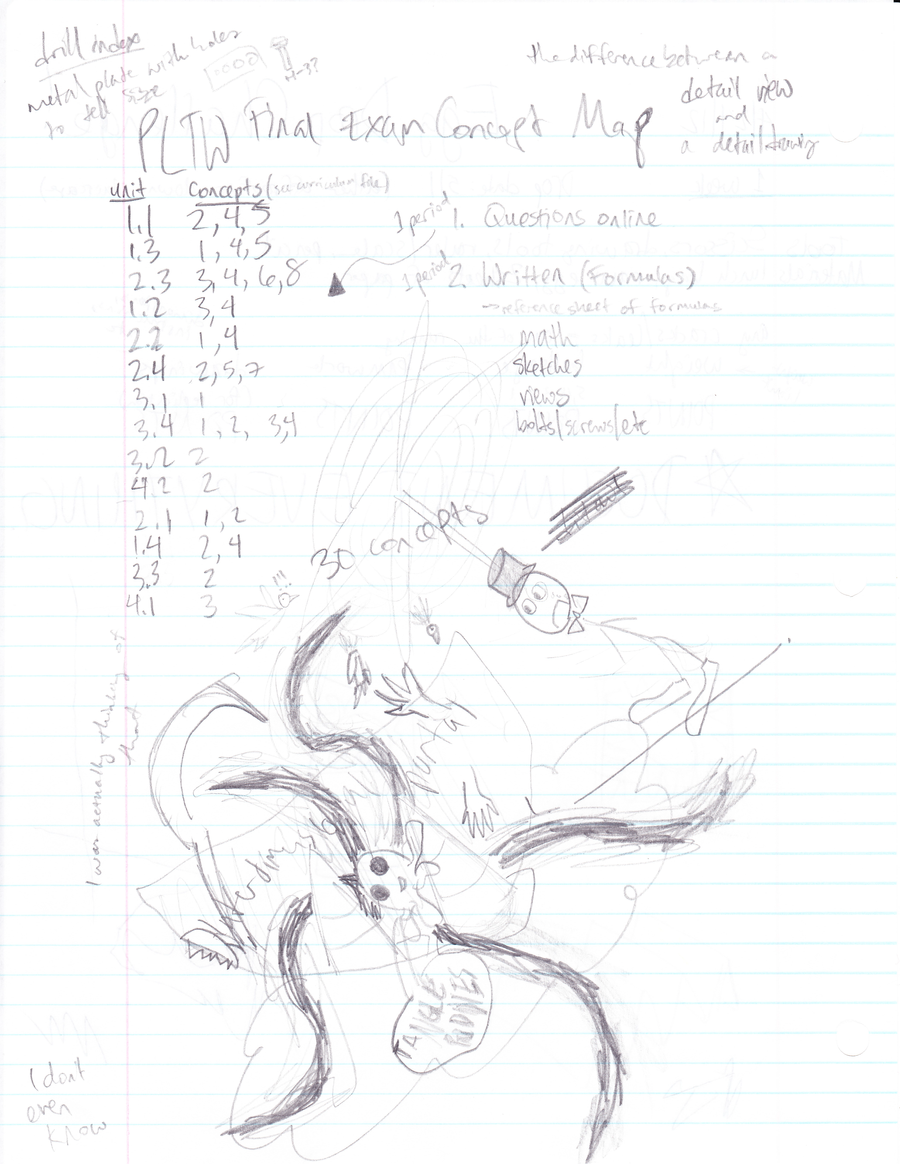 drill index
metal plate with holes
to tell size
the difference between a
detail view
and
a detail drawing
PLTW Final Exam Concept Map
unit concepts (see curriculum file)
1.1 2, 4, 5
1.3 1, 4, 5
2.3 3, 4, 6, 8
1.2 3, 4
2.2 1, 4
2.4 2, 5, 7
3.1 1
3.4 1, 2, 3,4
3.2 2
4.2 2
2.1 1, 2
1.4 2, 4
3.3 2
4.1 3
1 period 1. Questions online
1 period 2. Written (Formulas)
→reference sheet of formulas
math
sketches
views
bolts/screws/etc
30 concepts
!!!
I was actually thinking of
that
portal
I dont
even
know